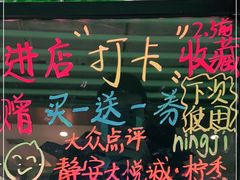 进店"打卡"收藏
赠买一送一券
下次使用
大众点评
ningji
静安大悦城·柠季